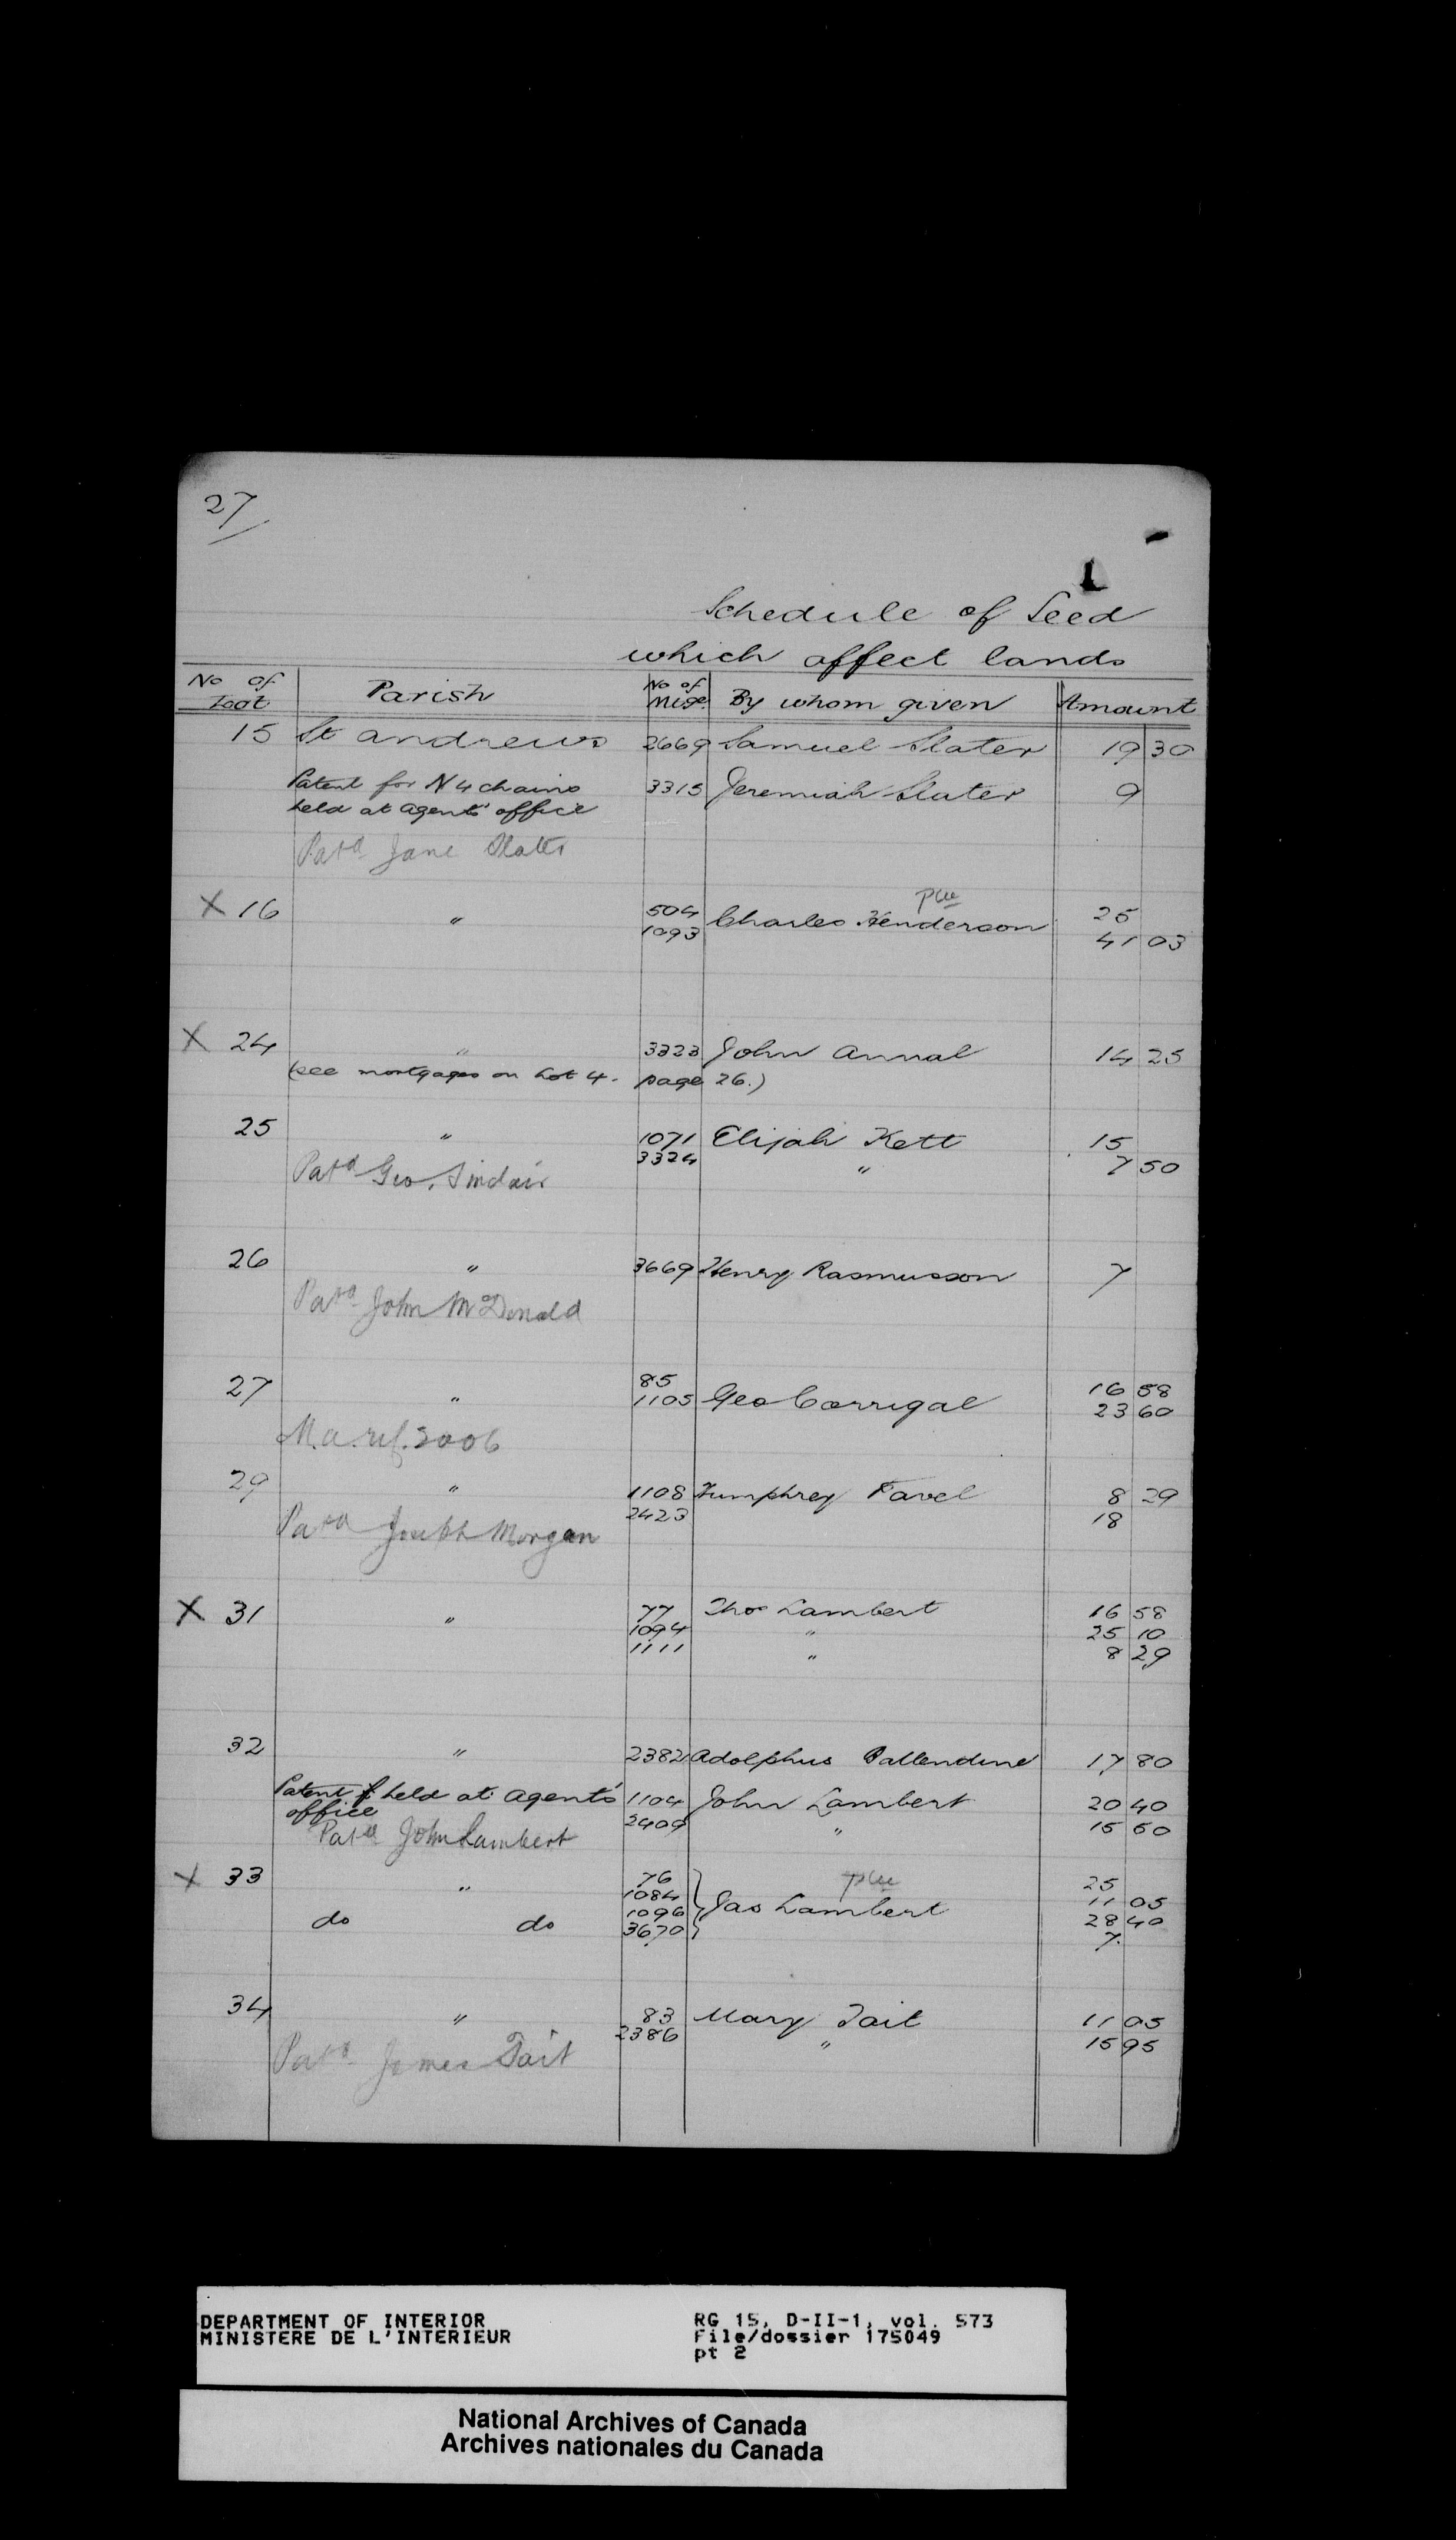 27
1
Schedule of Seed
which affect lands
No of Lot Parish No of Mtge. By whom given Amount
15 St Andrews 2669 Samuel Slater 19 30
Patent for N 4 chains 3315 Jeremiah Slater 9
held at Agents' office
Patd Jane Slater
pw
X 16 " 504 Charles Henderson 25
1093 41 03
X 24 " 3323 John Annal 14 25
(see mortgages on Lot 4. page 26.)
25 " 1071 Elijah Kett 15
3324 " 7 50
Patd Geo. Sinclair
26 " 3669 Henry Rasmusson 7
Patd John McDonald
27 " 85 Geo Corrigal 16 58
1105 23 60
M.a. ref. 2006
29 " 1108 Humphrey Favel 8 29
2423 18
Patd Joseph Morgan
X 31 " 77 Thos Lambert 16 58
1094 " 25 10
1111 " 8 29
32 " 2382 Adolphus Ballendine 17 80
Patent held at Agents' 1104 John Lambert 20 40
office 2409 " 15 60
Patd John Lambert
X 33 " 76 25
1084 Jas Lambert 11 05
do do 1096 28 40
3670 7
34 " 83 Mary Tait 11 05
2386 " 15 95
Patd James Tait
DEPARTMENT OF INTERIOR
MINISTERE DE L'INTERIEUR
RG 15, D-II-1, vol. 573
File/dossier 175049
pt 2
National Archives of Canada
Archives nationales du Canada